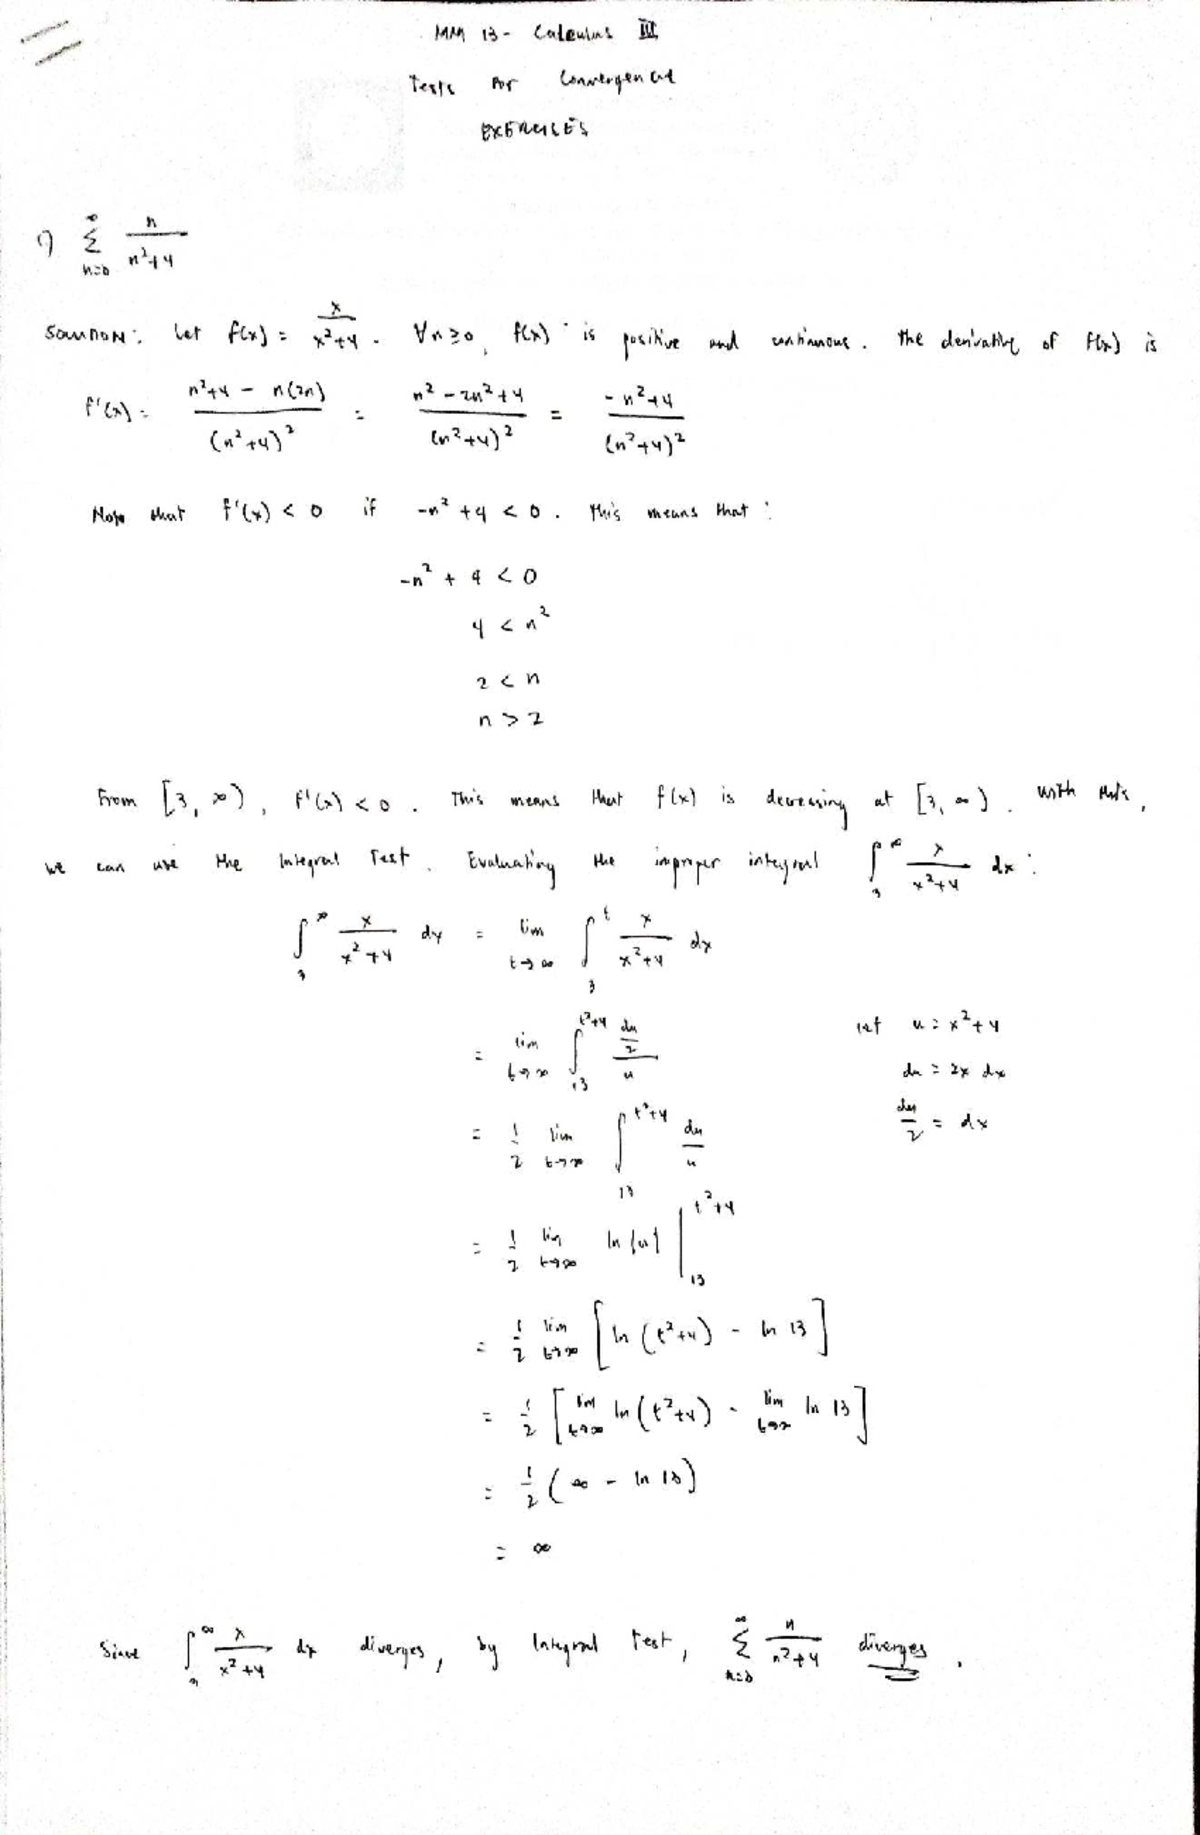 MM 13 - Calculus III
Tests for Convergence
EXERCISES
1) ∑_{n=0}^{∞} n/(n²+4)
SOLUTION: Let f(x) = x/(x²+4). ∀n≥0, f(x) is positive and continuous. The derivative of f(x) is
f'(x) = (n²+4 - n(2n))/(n²+4)² = (n² - 2n² + 4)/(n²+4)² = (-n²+4)/(n²+4)²
Note that f'(x) < 0 if -n² + 4 < 0. This means that:
-n² + 4 < 0
4 < n²
2 < n
n > 2
From [3, ∞), f'(x) < 0. This means that f(x) is decreasing at [3, ∞). With this,
we can use the Integral Test. Evaluating the improper integral ∫_3^∞ x/(x²+4) dx:
∫_3^∞ x/(x²+4) dx = lim_{t→∞} ∫_3^t x/(x²+4) dx
= lim_{t→∞} ∫_{13}^{t²+4} (du/2)/u let u = x²+4
du = 2x dx
= 1/2 lim_{t→∞} ∫_{13}^{t²+4} du/u du/2 = dx
= 1/2 lim_{t→∞} ln|u| |_{13}^{t²+4}
= 1/2 lim_{t→∞} [ln(t²+4) - ln 13]
= 1/2 [lim_{t→∞} ln(t²+4) - lim_{t→∞} ln 13]
= 1/2 (∞ - ln 13)
= ∞
Since ∫_3^∞ x/(x²+4) dx diverges, by Integral Test, ∑_{n=0}^{∞} n/(n²+4) diverges.